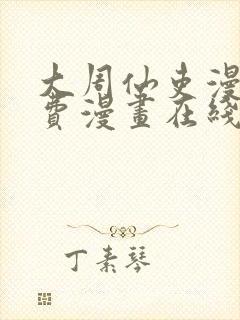 大周仙吏漫
費漫畫在綫
丁素琴